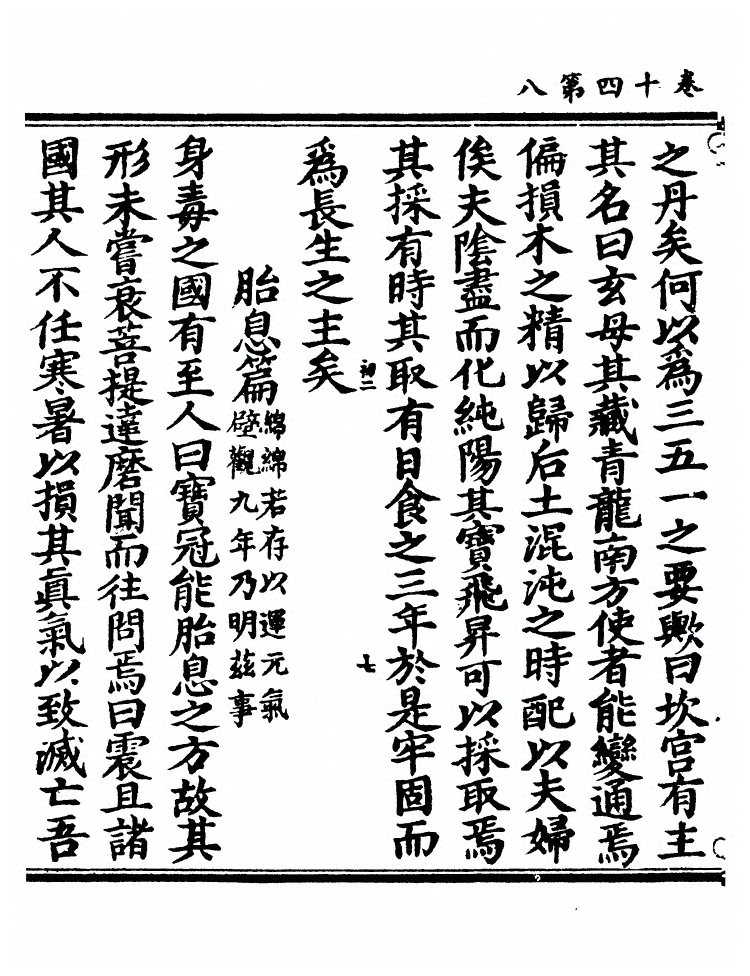 卷十四第八
之丹矣何以爲三五一之要歟曰坎宮有主
其名曰玄母其藏青龍南方使者能變通焉
偏損木之精以歸后土混沌之時配以夫婦
俟夫陰盡而化純陽其寶飛昇可以採取焉
其採有時其取有日食之三年於是牢固而
初二
七
爲長生之主矣
胎息篇綿綿若存以運元氣
壁觀九年乃明茲事
身毒之國有至人曰寶冠能胎息之方故其
形未嘗衰菩提達磨聞而往問焉曰震旦諸
國其人不任寒暑以損其眞氣以致滅亡吾